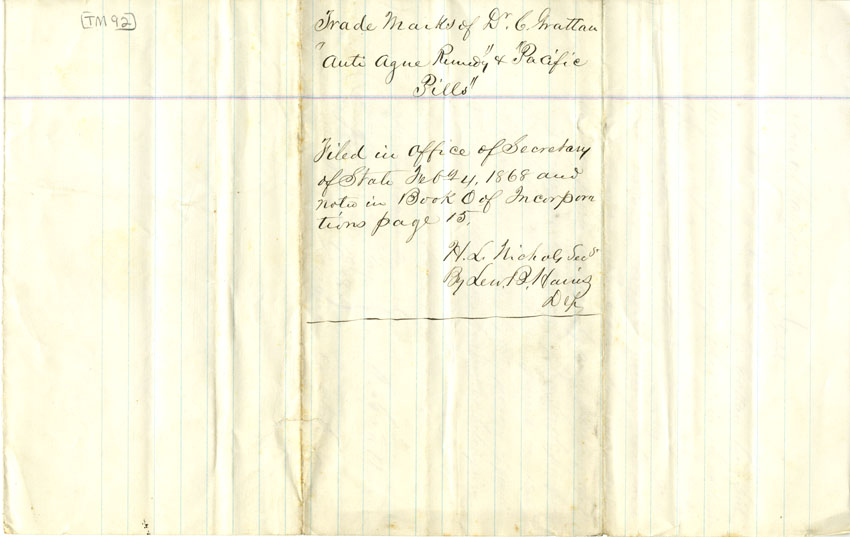 [TM 92]
Trade Marks of Dr. C. Grattan
"Anti Ague Remedy" & "Pacific
Pills"
Filed in office of Secretary
of State Feb 4, 1868 and
noted in Book O of Incorpora
tions page 15.
H. L. Nichols Secy
By Lew. B. Harris
Dep